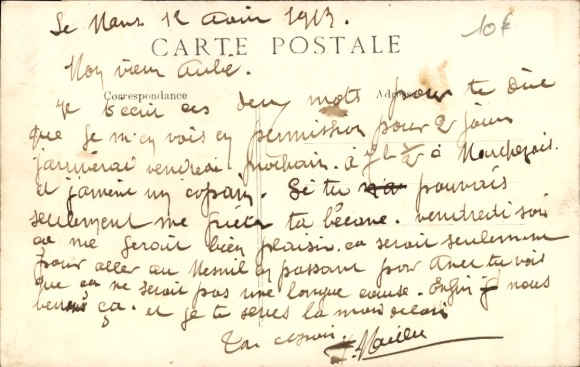 Le Mans 12 Avril 1913.
10€
CARTE POSTALE
Mon vieux
Correspondance
Adresse
Je t'écrit ces deux mots pour te dire
que je m'en vois en permission pour 2 jours
j'arriverai vendredi prochain à 7h ½ à
et j'amène un copain. Si tu pouvais
seulement me preter ta bécane vendredi soir
ça me ferait bien plaisir. ca serait seulement
pour aller au Mesnil en passant par tu vois
que ca ne serait pas une longue course. Enfin nous
verrons ça. et je te serres la main
Ton cousin.